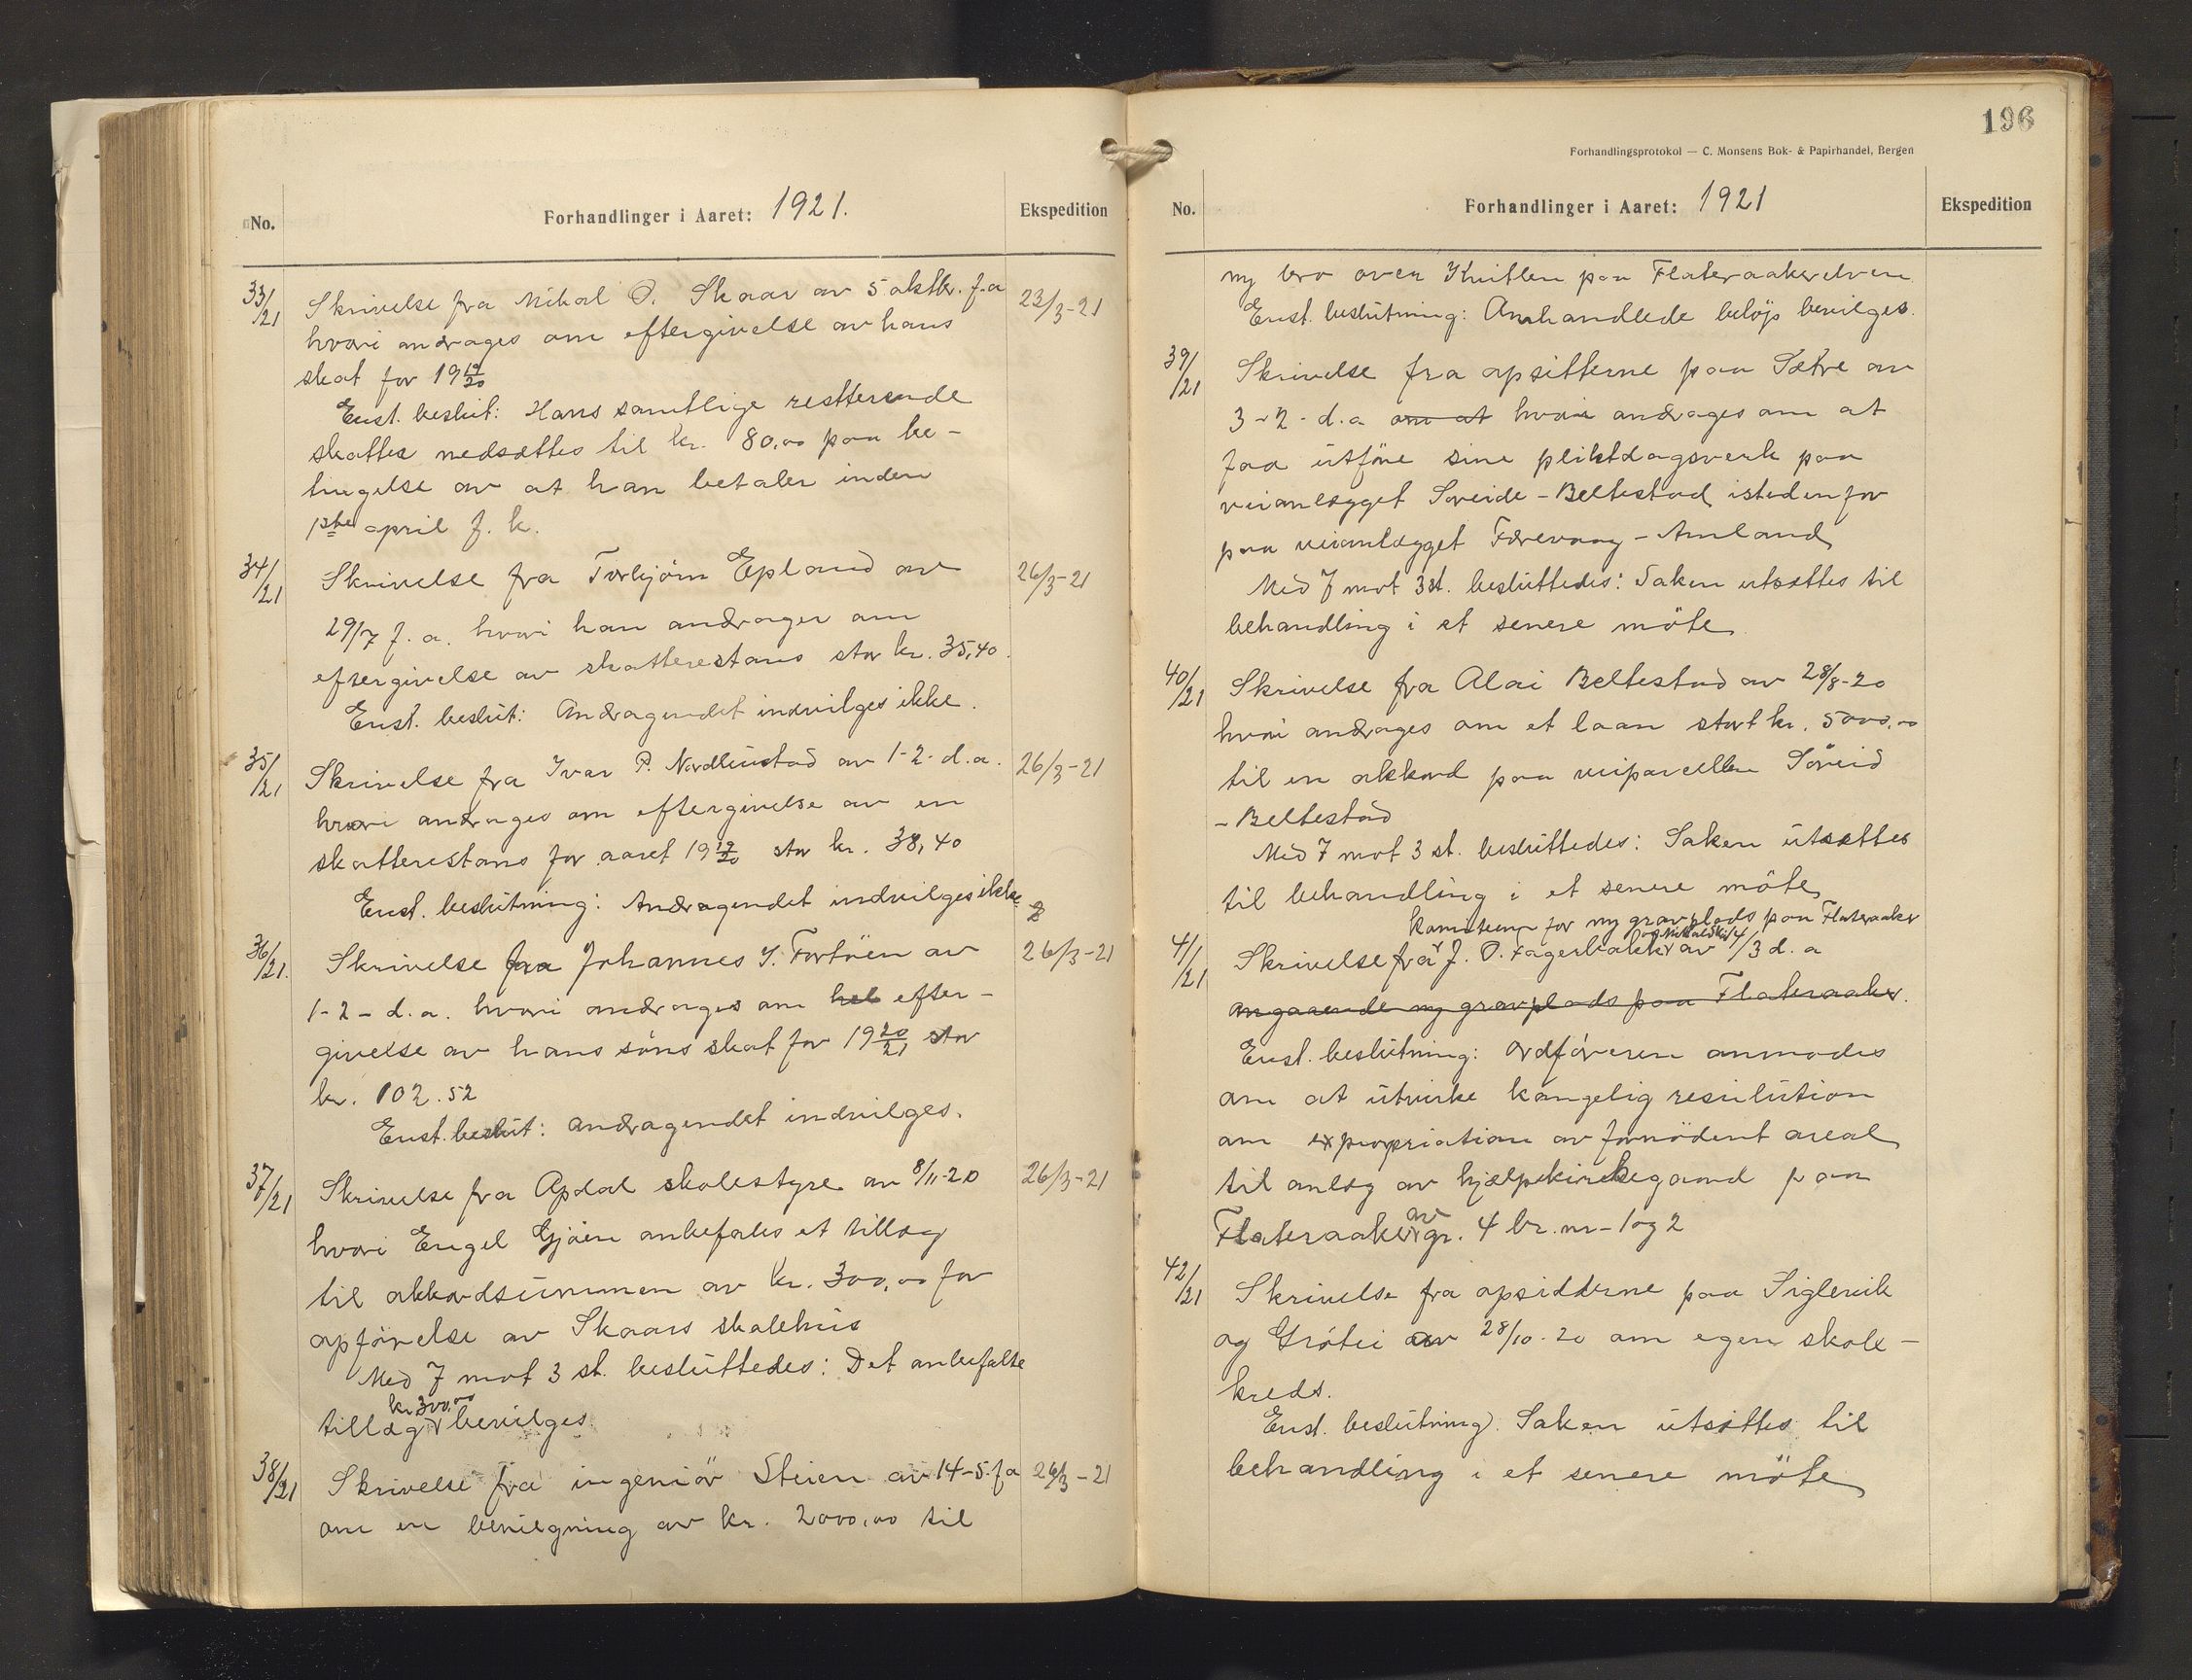 No.
Forhandlinger i Aaret: 1921.
Ekspedition
33/21
Skrivelse fra Nikal O. Skaar av 5 oktbr. f.a
23/3-21
hvori andrages om eftergivelse av hans
skat for 19 19/20
Enst. beslut: Hans samtlige resterende
skatter nedsættes til kr. 80,00 paa be-
tingelse av at han betaler inden
1ste april f. k.
34/21
Skrivelse fra Torbjörn Epland av
26/3-21
29/7 f. a. hvori han andrager om
eftergivelse av skatterestans stor kr. 35,40.
Enst. beslut: Andragendet indvilges ikke.
35/21
Skrivelse fra Ivar P. Nordhustad av 1-2-d.a.
26/3-21
hvori andrages om eftergivelse av en
skatterestans for aaret 19 19/20 stor kr. 38,40
Enst. beslutning: Andragendet indvilges ikke.
36/21.
Skrivelse fra Johannes J. Fortöen av
26/3-21
1-2-d.a. hvori andrages om hel efter-
givelse av hans söns skat for 19 20/21 stor
kr. 102.52
Enst. beslut: andragendet indvilges.
37/21
Skrivelse fra Apdal skolestyre av 8/11-20
26/3-21
hvori Engel Gjöen anbefales et tillæg
til akkordsummen av kr. 300,00 for
opförelse av Skaars skolehus
Med 7 mot 3 st. besluttedes: Det anbefalte
kr 300,00
tillæg bevilges.
38/21
Skrivelse fra ingeniör Steien av 14-5-f.a
26/3-21
om en bevilgning av kr. 2000,00 til
196
Forhandlingsprotokol — C. Monsens Bok- & Papirhandel, Bergen
No.
Forhandlinger i Aaret: 1921
Ekspedition
ny bro over Kvitlen paa Flateraakerelven.
Enst. beslutning: Omhandlede belöp bevilges.
39/21
Skrivelse fra opsitterne paa Sætre av
3-2-d.a om at hvori andrages om at
faa utföre sine pliktdagsverk paa
veianlægget Söreide-Beltestad istedenfor
paa veianlægget Færevaag-Amland
Med 7 mot 3 st. besluttedes: Saken utsættes til
behandling i et senere möte
40/21
Skrivelse fra Olai Beltestad av 28/8-20
hvori andrages om et laan stort kr. 5000,00
til en akkord paa veiparcellen Söreid
-Beltestad
Med 7 mot 3 st. besluttedes: Saken utsættes
til behandling i et senere möte
komiteen for ny gravplads paa Flateraaker
41/21
Skrivelse fra J. O. Fagerbakke av 14/3 d.a
angaaende ny gravplads paa Flateraaker.
Enst. beslutning: Ordföreren anmodes
om at utvirke kongelig resulution
om expropriation av fornödent areal
til anlæg av hjælpekirkegaard paa
av
Flateraaker gr. 4 br. nr-1 og 2
42/21
Skrivelse fra opsidderne paa Siglevik
og Grötei av 28/10-20 om egen skole-
kreds.
Enst. beslutning). Saken utsættes til
behandling i et senere möte